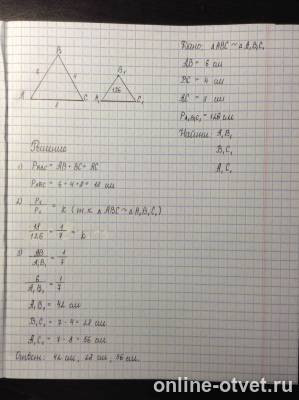 B
6
4
A
8
C
B₁
126
A₁
C₁
Дано: △ABC ~ △A₁B₁C₁
AB = 6 см
BC = 4 см
AC = 8 см
P A₁B₁C₁ = 126 см
Найти: A₁B₁
B₁C₁
A₁C₁
Решение
1) P ABC = AB + BC + AC
P ABC = 6 + 4 + 8 = 18 см
2) P₁/P₂ = k (т.к. △ABC ~ △A₁B₁C₁)
18/126 = 1/7 = k
3) AB/A₁B₁ = 1/7
6/A₁B₁ = 1/7
A₁B₁ = 42 см
B₁C₁ = 7 · 4 = 28 см
A₁C₁ = 7 · 8 = 56 см
Ответ: 42 см, 28 см, 56 см.
online-otvet.ru